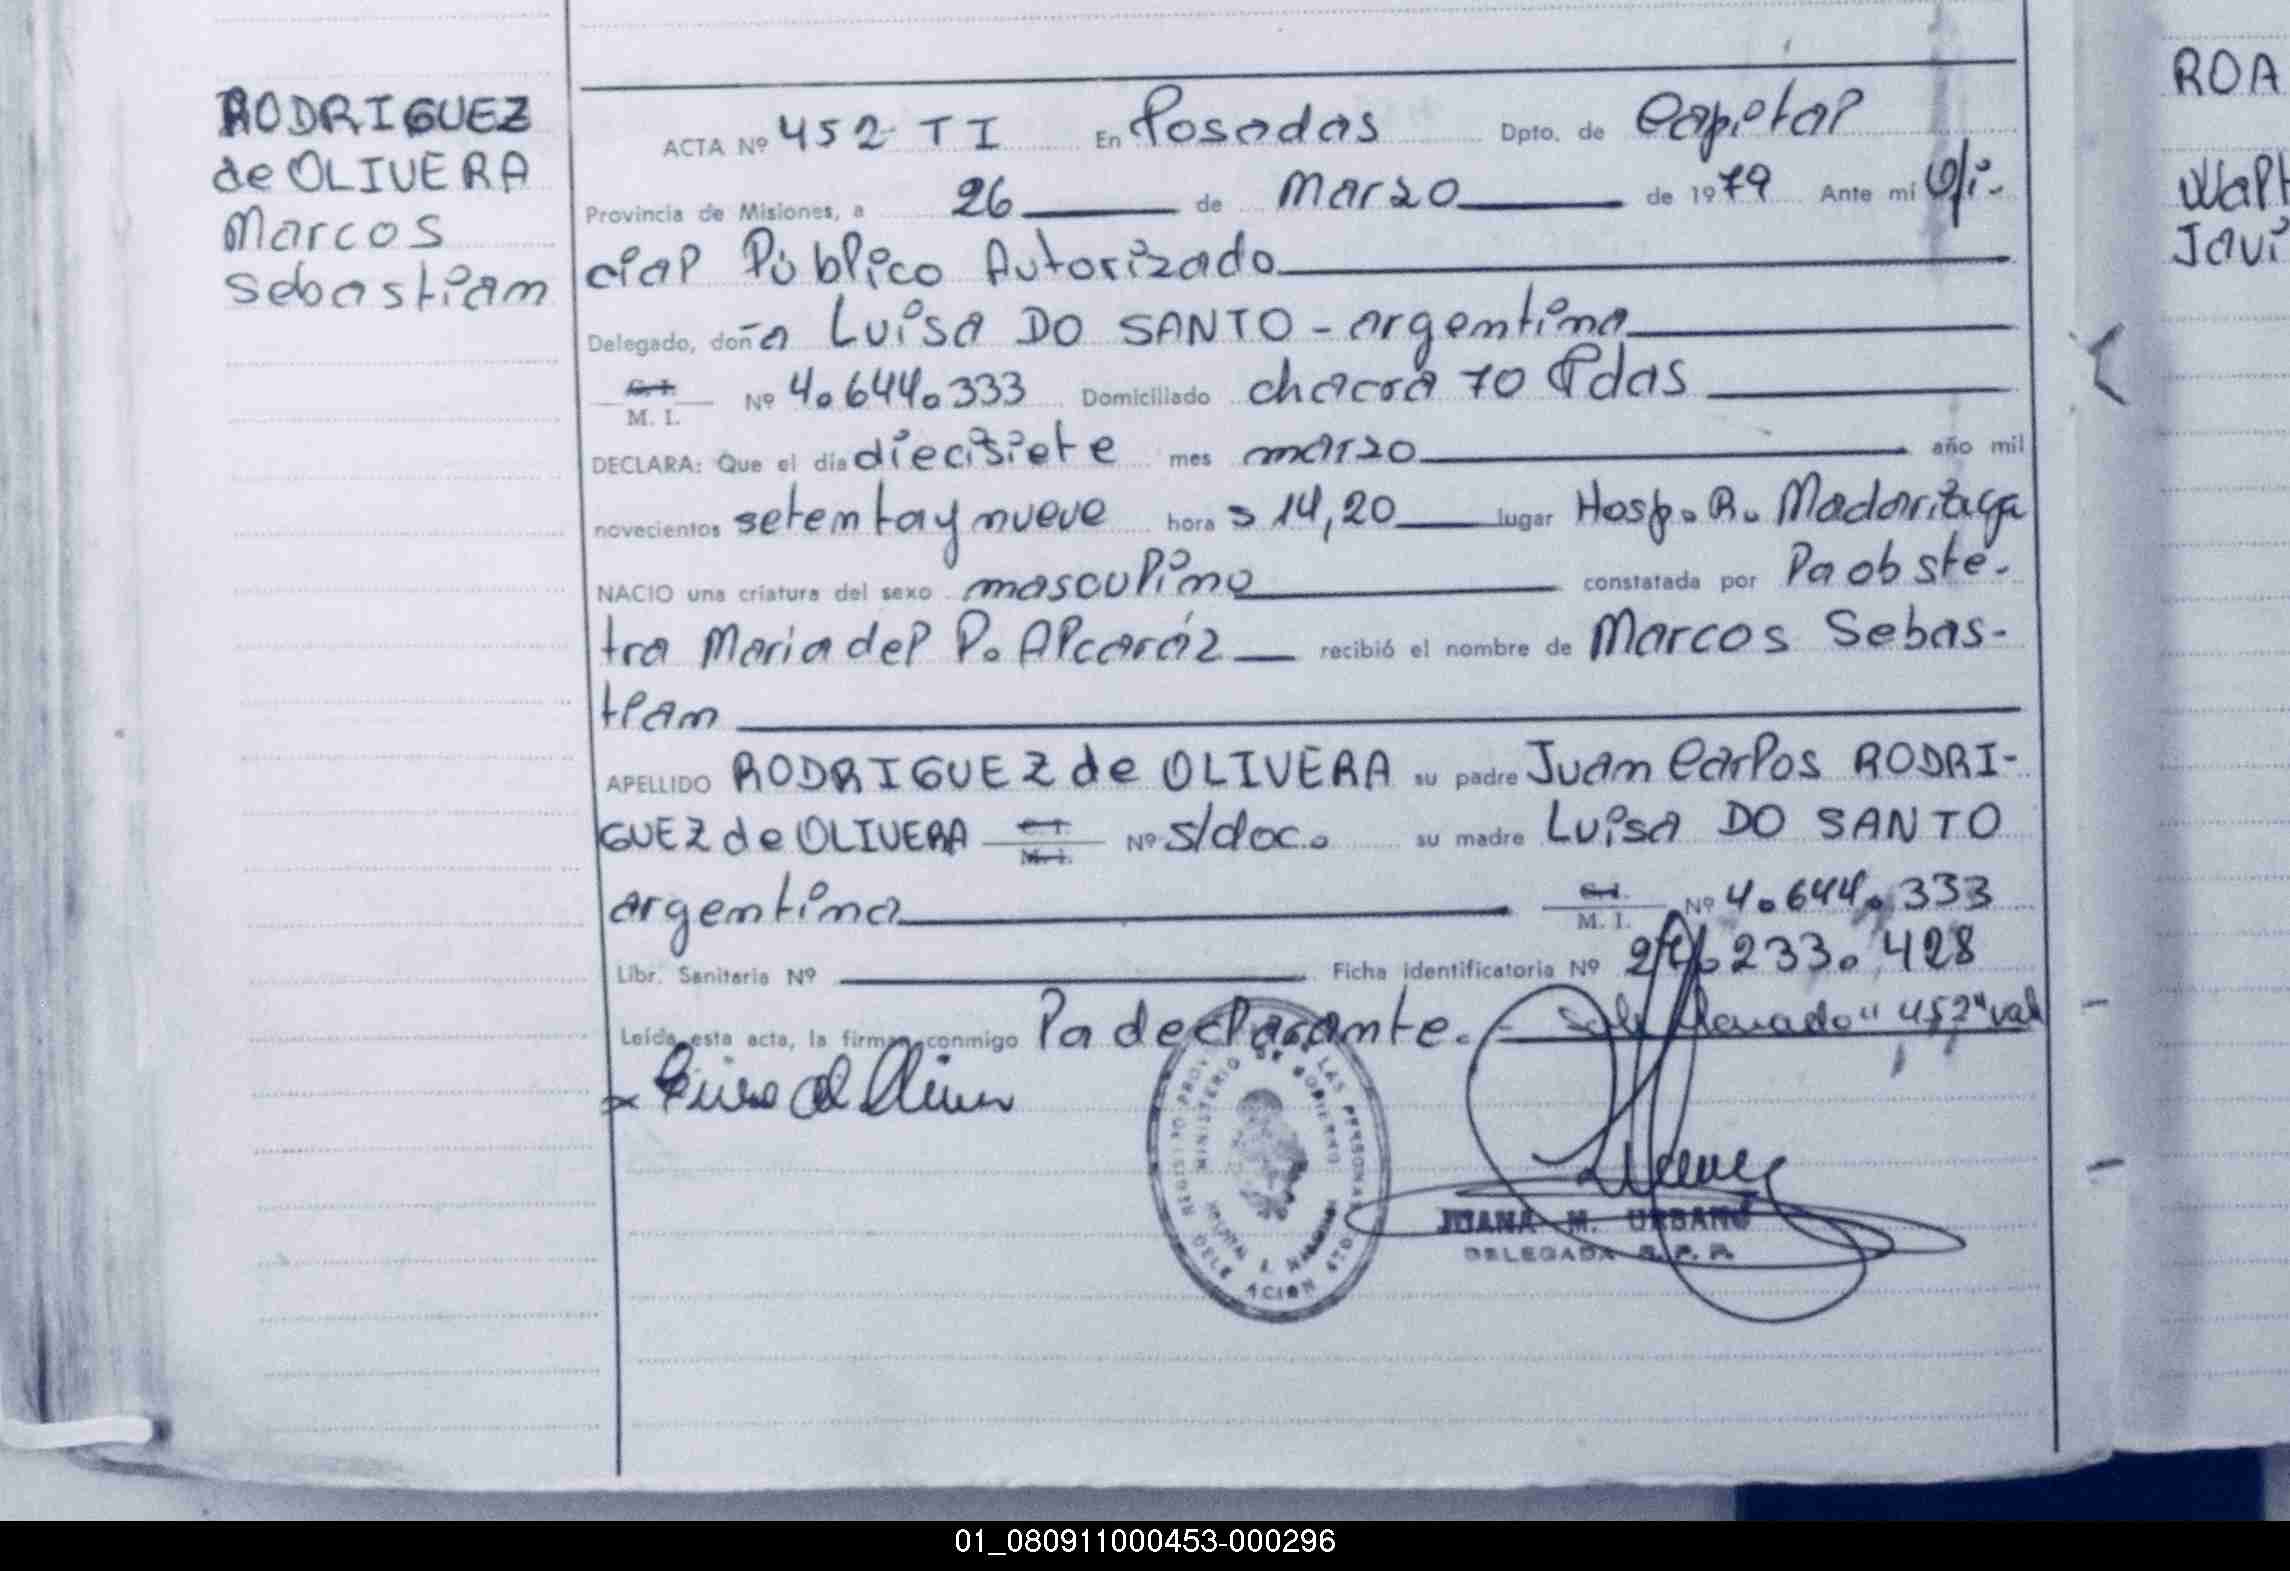 RODRIGUEZ
de OLIVERA
Marcos
Sebastian
ACTA Nº 452 TI En Posadas Dpto. de Capital
Provincia de Misiones, a 26 de Marzo de 1979 Ante mi Ofi-
cial Público Autorizado
Delegado, doña Luisa DO SANTO - argentina
C. I. M. I. Nº 4.644.333 Domiciliado chacra 70 Pdas
DECLARA: Que el día diecisiete mes marzo año mil
novecientos setenta y nueve hora s 14,20 lugar Hosp. R. Madariaga
NACIO una criatura del sexo masculino constatada por la obste-
tra Maria del P. Alcaráz recibió el nombre de Marcos Sebas-
tian
APELLIDO RODRIGUEZ de OLIVERA su padre Juan Carlos RODRI-
GUEZ de OLIVERA C. I. M. I. Nº s/doc. su madre Luisa DO SANTO
argentina C. I. M. I. Nº 4.644.333
Libr. Sanitaria Nº Ficha identificatoria Nº 233.428
Leída esta acta, la firman conmigo la declarante. "452" vale
REGISTRO PROV. DE LAS PERSONAS
MINISTERIO DE GOBIERNO
JUANA M. URBANO
DELEGADA R. P. P.
ROA
Walt
Javi
01_080911000453-000296